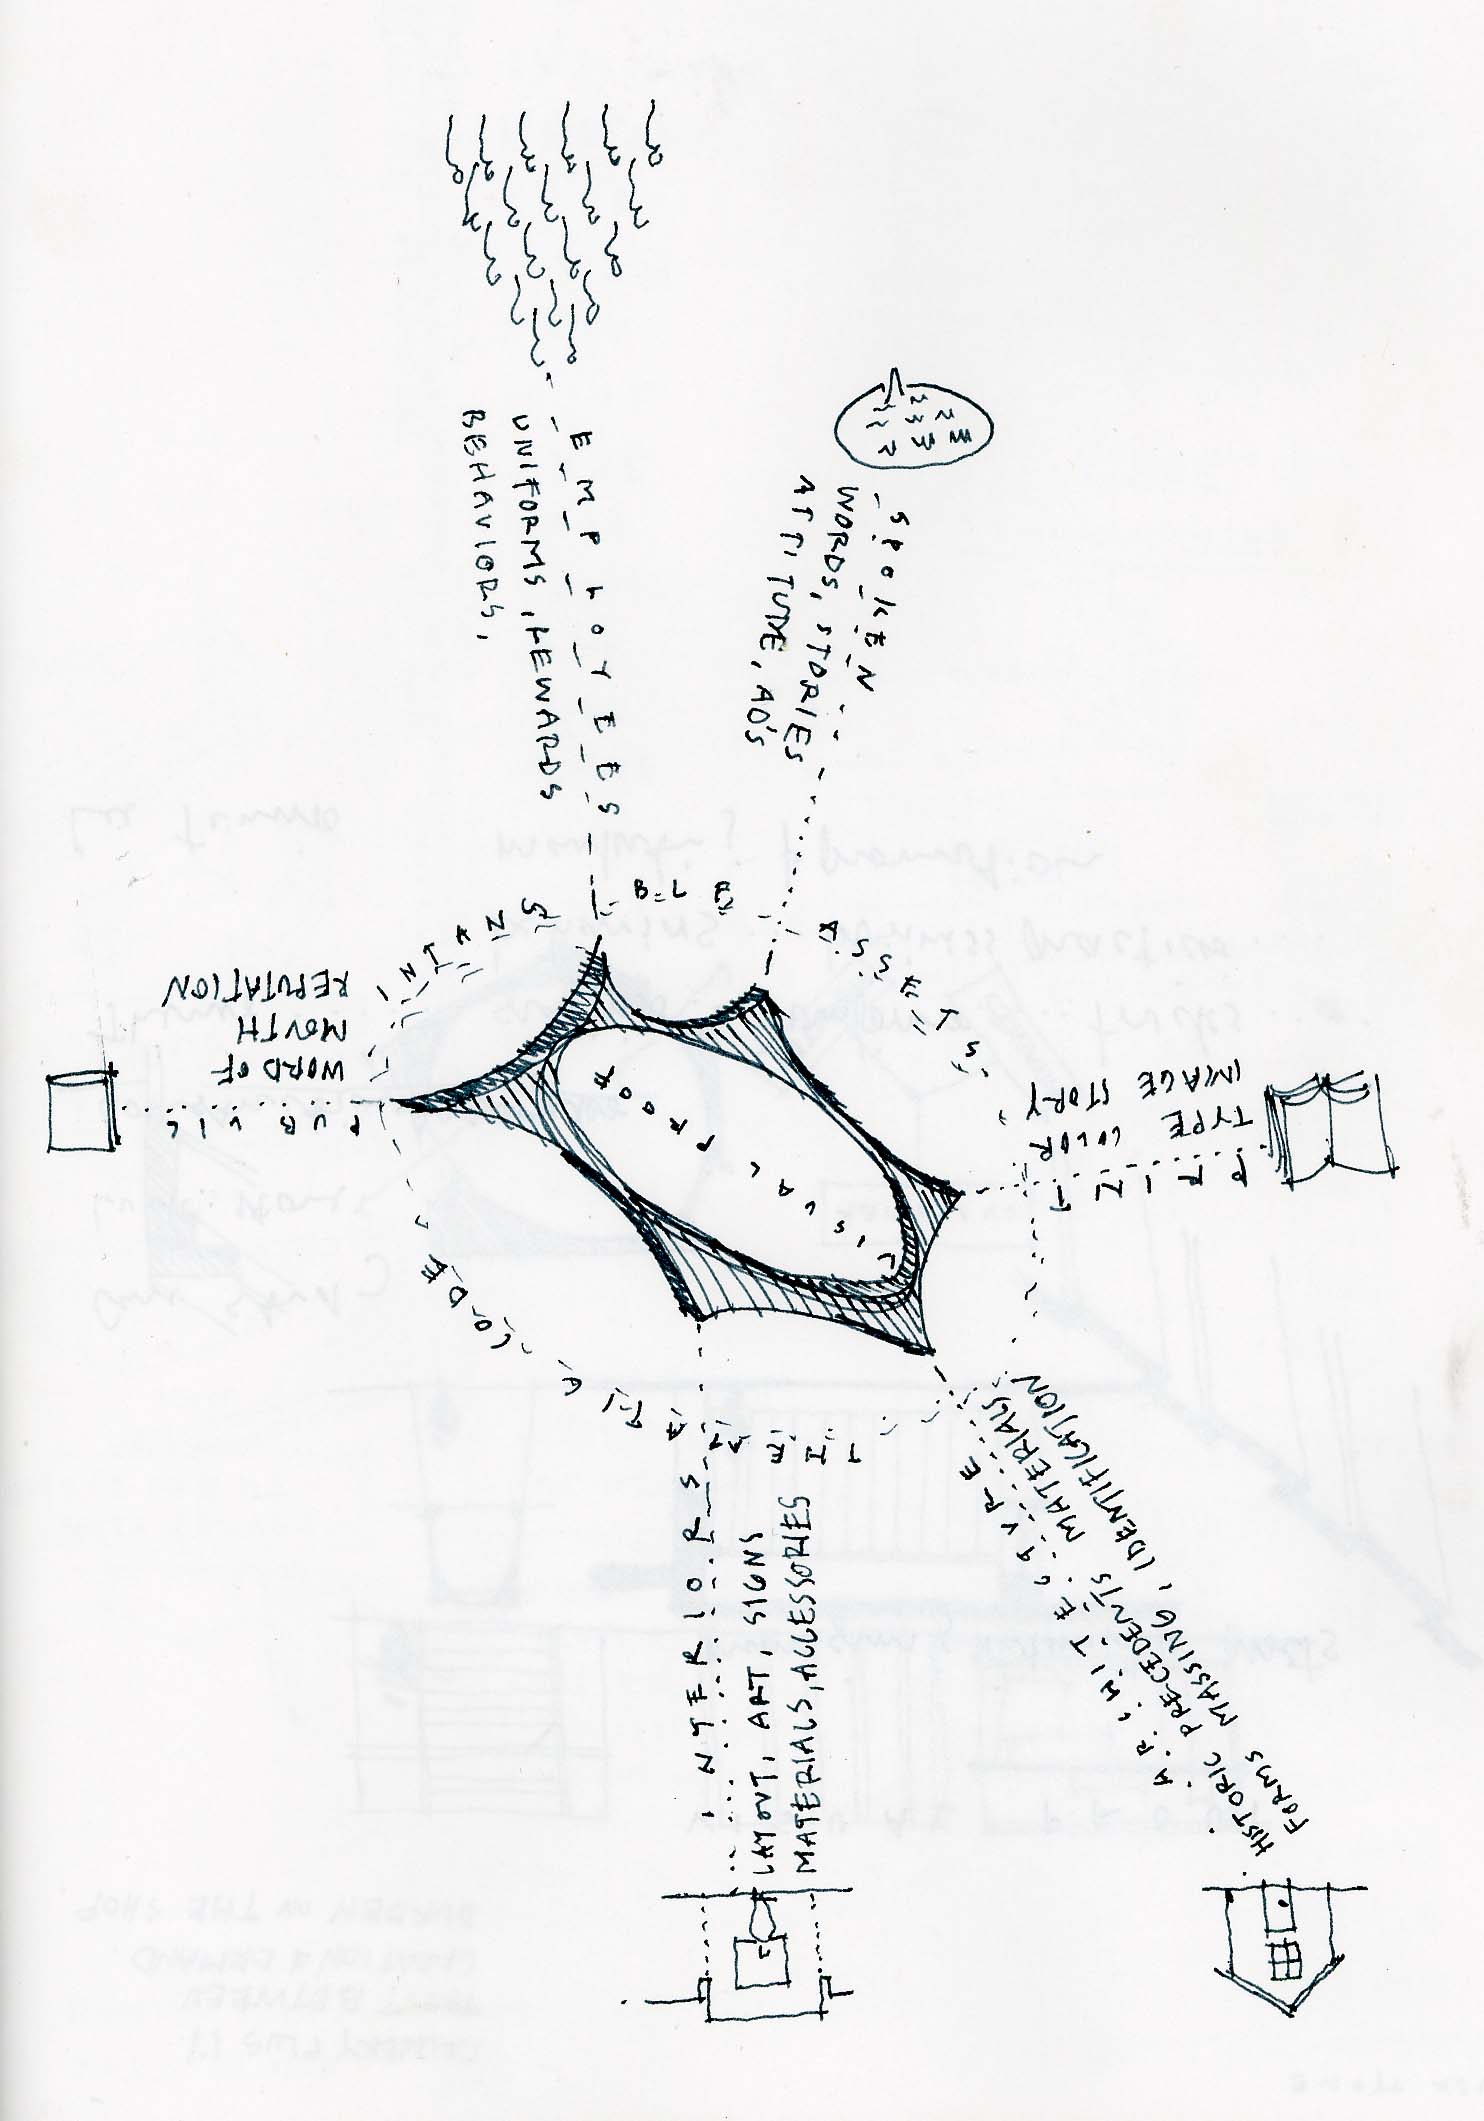 EMPLOYEES
UNIFORMS, REWARDS
BEHAVIORS,
SPOKEN
WORDS, STORIES
ATTITUDE, AD'S
PUBLIC
WORD OF
MOUTH
REPUTATION
PRINT
TYPE COLOR
IMAGE STORY
VISUAL PROOF
INTANSIBLE ASSETS
CODE
INTERIORS
LAYOUT, ART, SIGNS
MATERIALS, ACCESSORIES
HISTORIC PRECEDENTS MATERIALS
FORMS MASSING, IDENTIFICATION